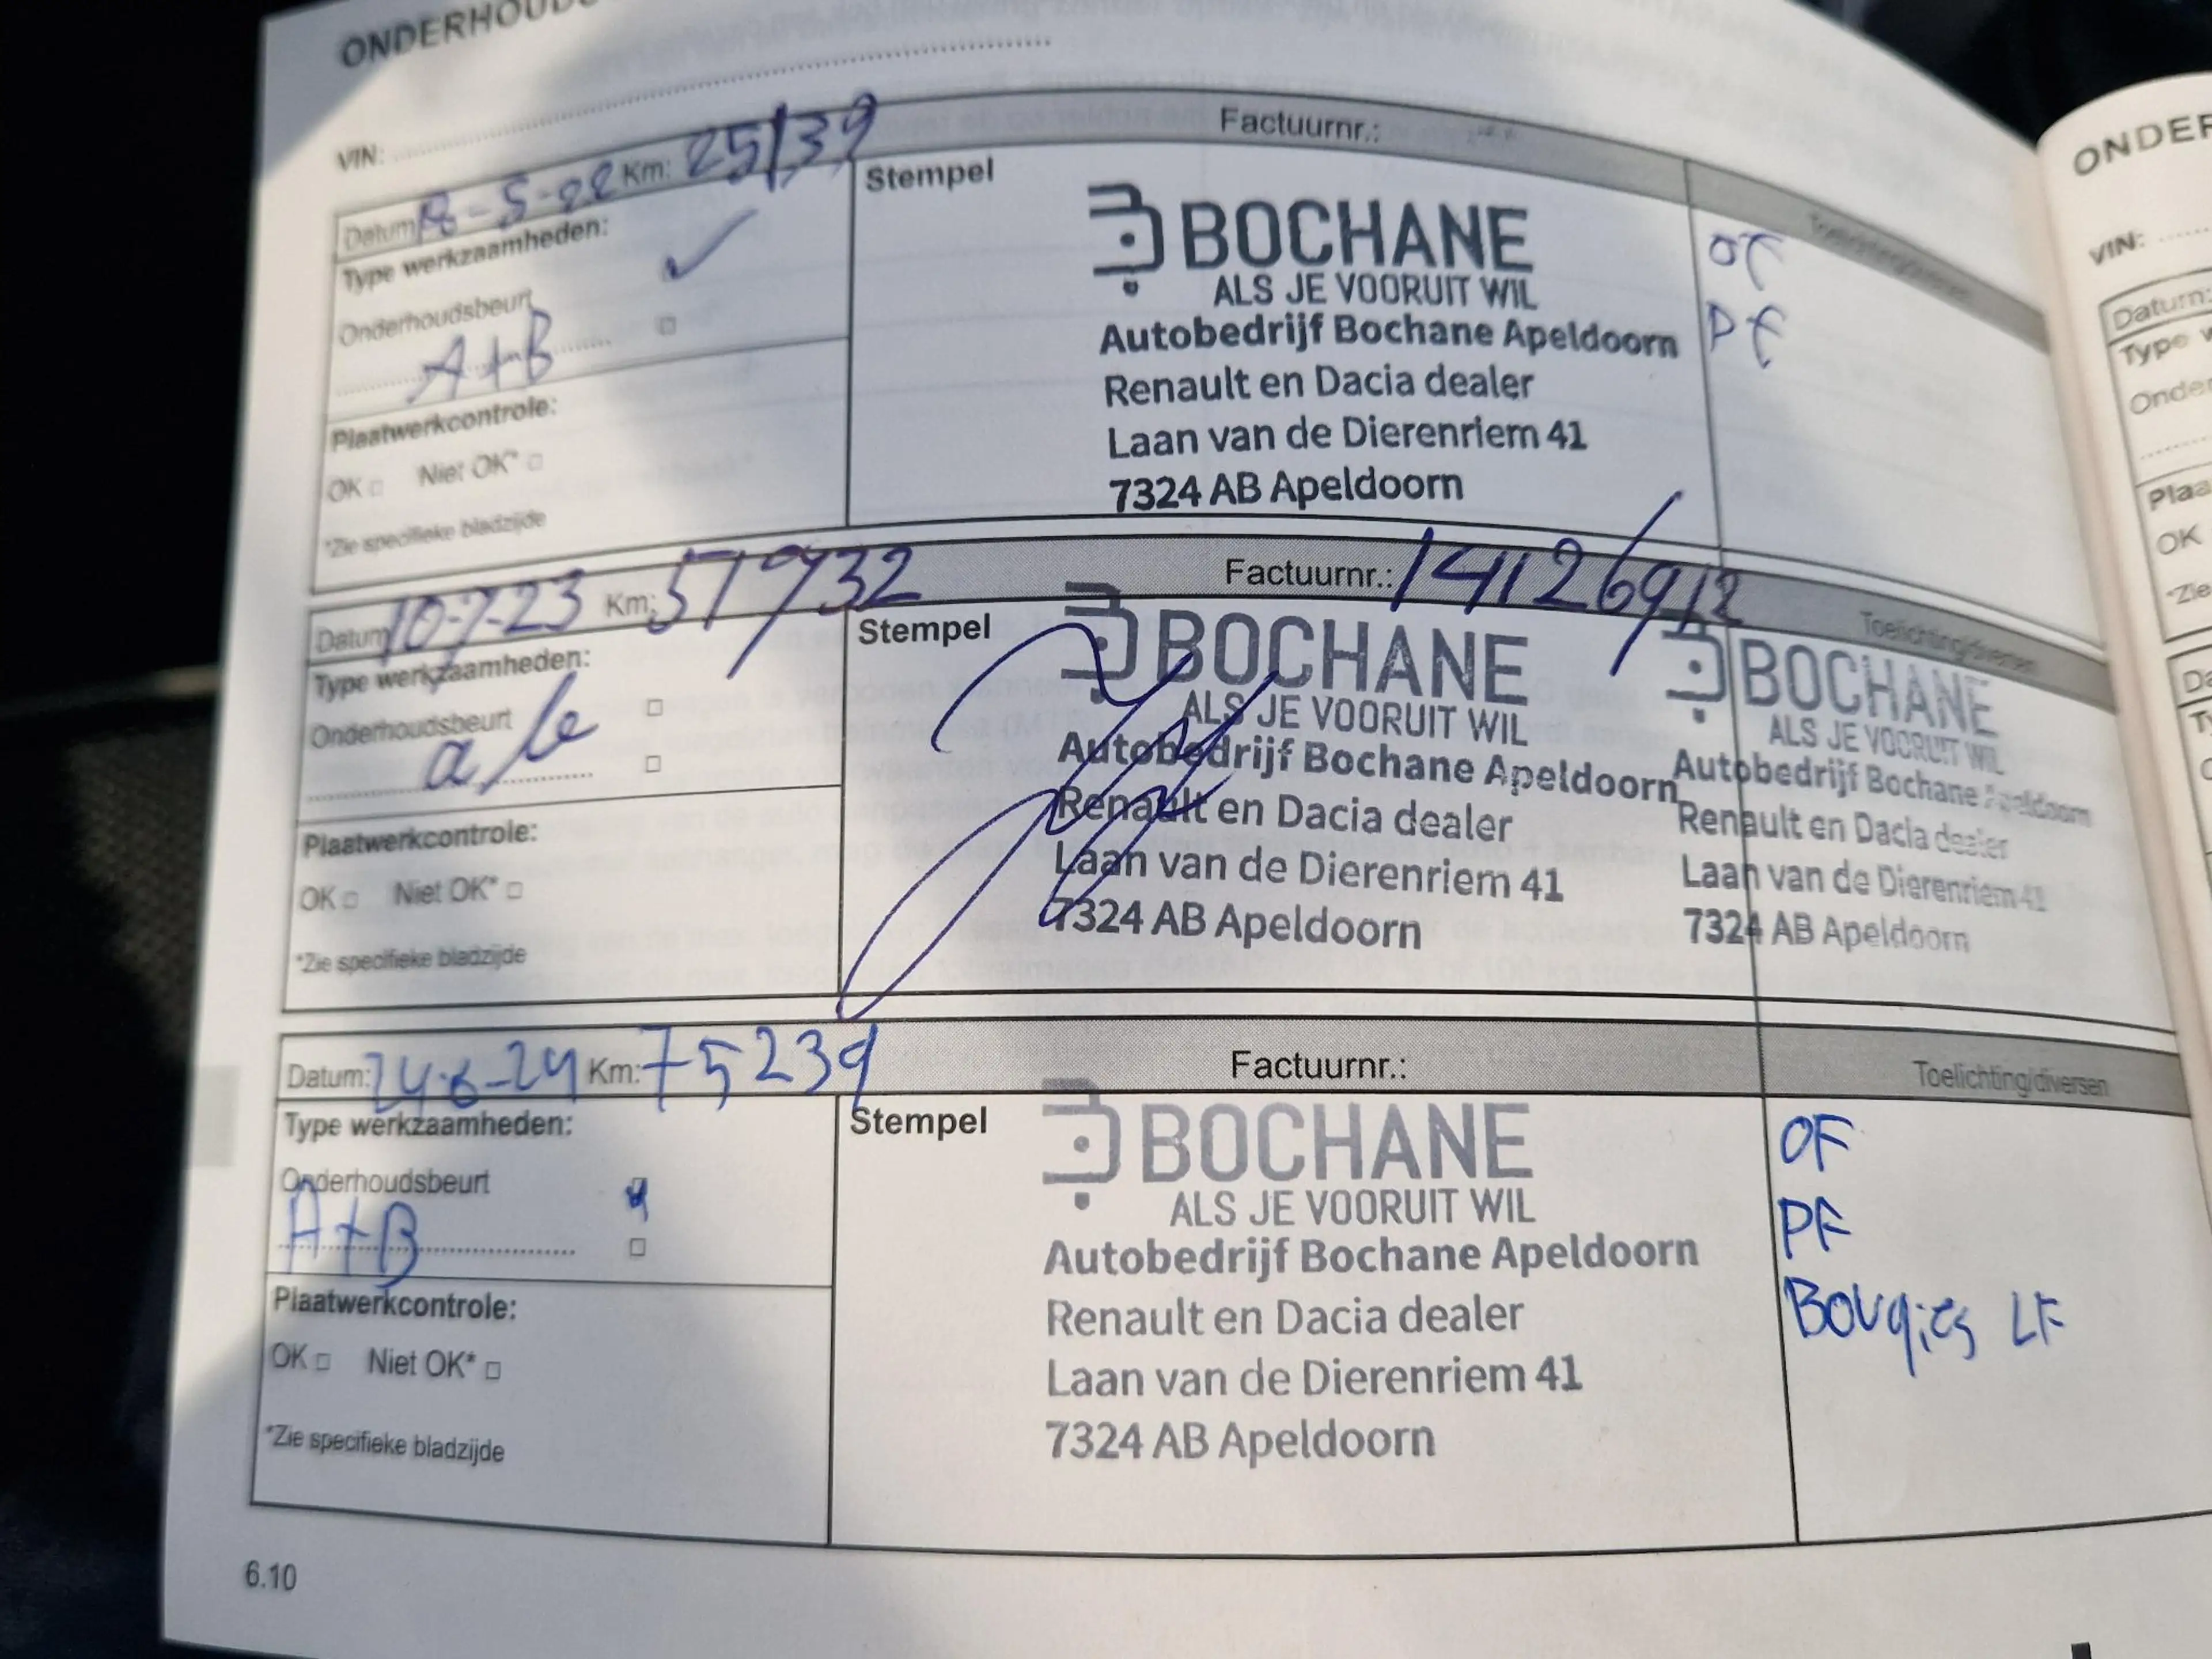 ONDERHOUDS
VIN:
Datum 18-5-22 Km: 25139 Factuurnr.:
Type werkzaamheden:
Onderhoudsbeurt
A+B
Plaatwerkcontrole:
OK Niet OK*
*Zie specifieke bladzijde
Stempel
BOCHANE
ALS JE VOORUIT WIL
Autobedrijf Bochane Apeldoorn
Renault en Dacia dealer
Laan van de Dierenriem 41
7324 AB Apeldoorn
Toelichting/diversen
OF
PF
Datum 10-7-23 Km: 51932 Factuurnr.: 14112692
Type werkzaamheden:
Onderhoudsbeurt
a/b
Plaatwerkcontrole:
OK Niet OK*
*Zie specifieke bladzijde
Stempel
BOCHANE
ALS JE VOORUIT WIL
Autobedrijf Bochane Apeldoorn
Renault en Dacia dealer
Laan van de Dierenriem 41
7324 AB Apeldoorn
Toelichting/diversen
BOCHANE
ALS JE VOORUIT WIL
Autobedrijf Bochane Apeldoorn
Renault en Dacia dealer
Laan van de Dierenriem 41
7324 AB Apeldoorn
Datum: 24-6-24 Km: 75239 Factuurnr.: Toelichting/diversen
Type werkzaamheden:
Onderhoudsbeurt
A+B
Plaatwerkcontrole:
OK Niet OK*
*Zie specifieke bladzijde
Stempel
BOCHANE
ALS JE VOORUIT WIL
Autobedrijf Bochane Apeldoorn
Renault en Dacia dealer
Laan van de Dierenriem 41
7324 AB Apeldoorn
OF
PF
Bougies LF
6.10
ONDER
VIN:
Datum:
Type
Onder
Plaa
OK
*Zie